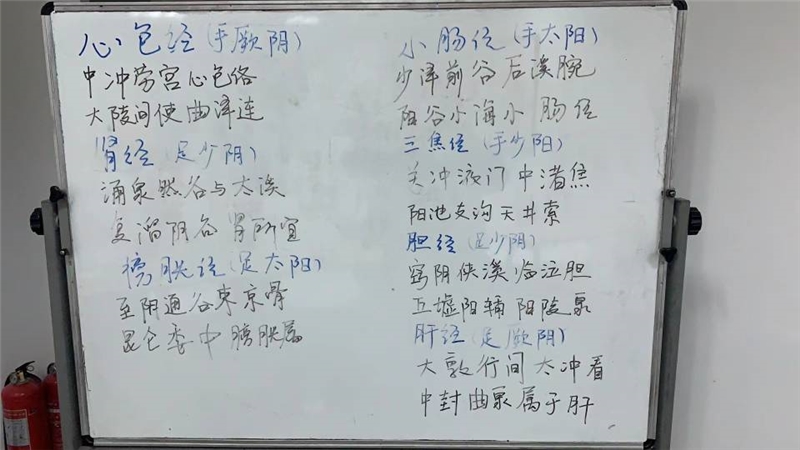 心包经(手厥阴)
中冲劳宫心包络
大陵间使曲泽连
肾经(足少阴)
涌泉然谷与太溪
复溜阴谷肾所宜
膀胱经(足太阳)
至阴通谷束京骨
昆仑委中膀胱属
小肠经(手太阳)
少泽前谷后溪腕
阳谷小海小肠经
三焦经(手少阳)
关冲液门中渚焦
阳池支沟天井索
胆经(足少阴)
窍阴侠溪临泣胆
丘墟阳辅阳陵泉
肝经(足厥阴)
大敦行间太冲看
中封曲泉属于肝